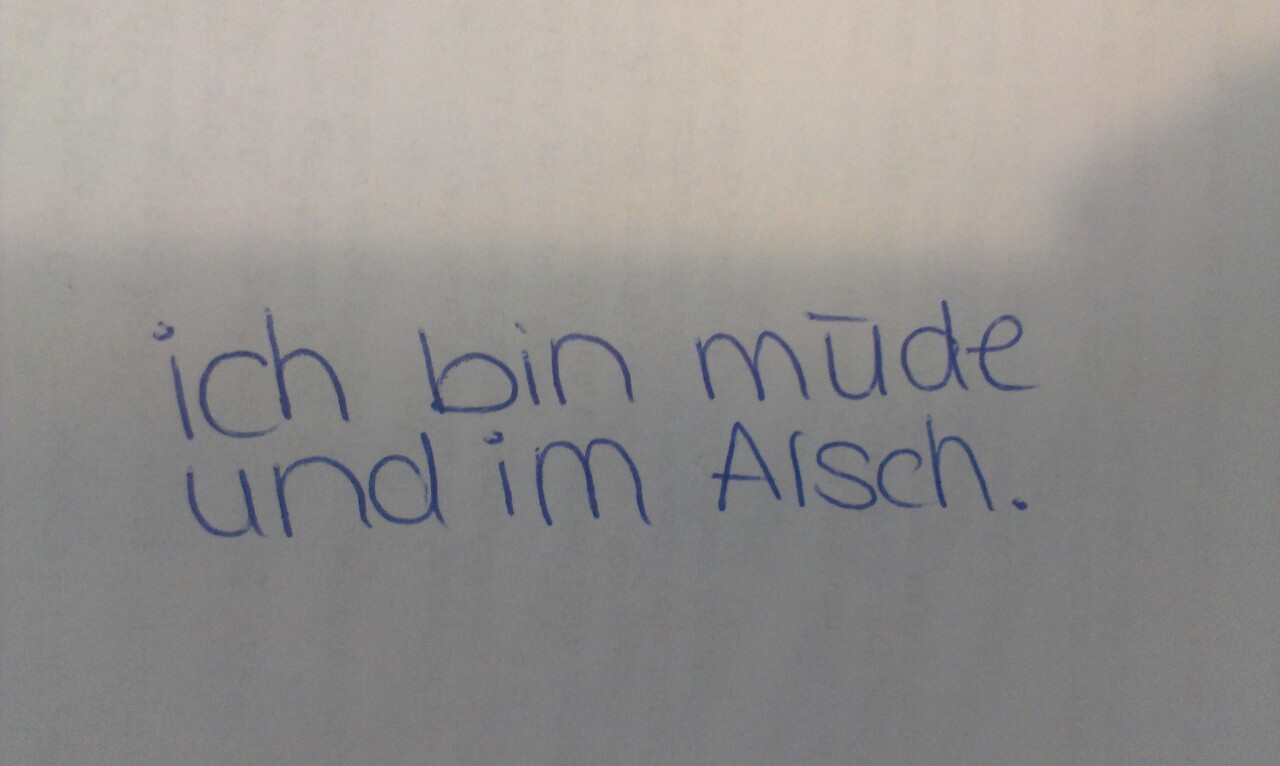 ich bin müde
und im Arsch.